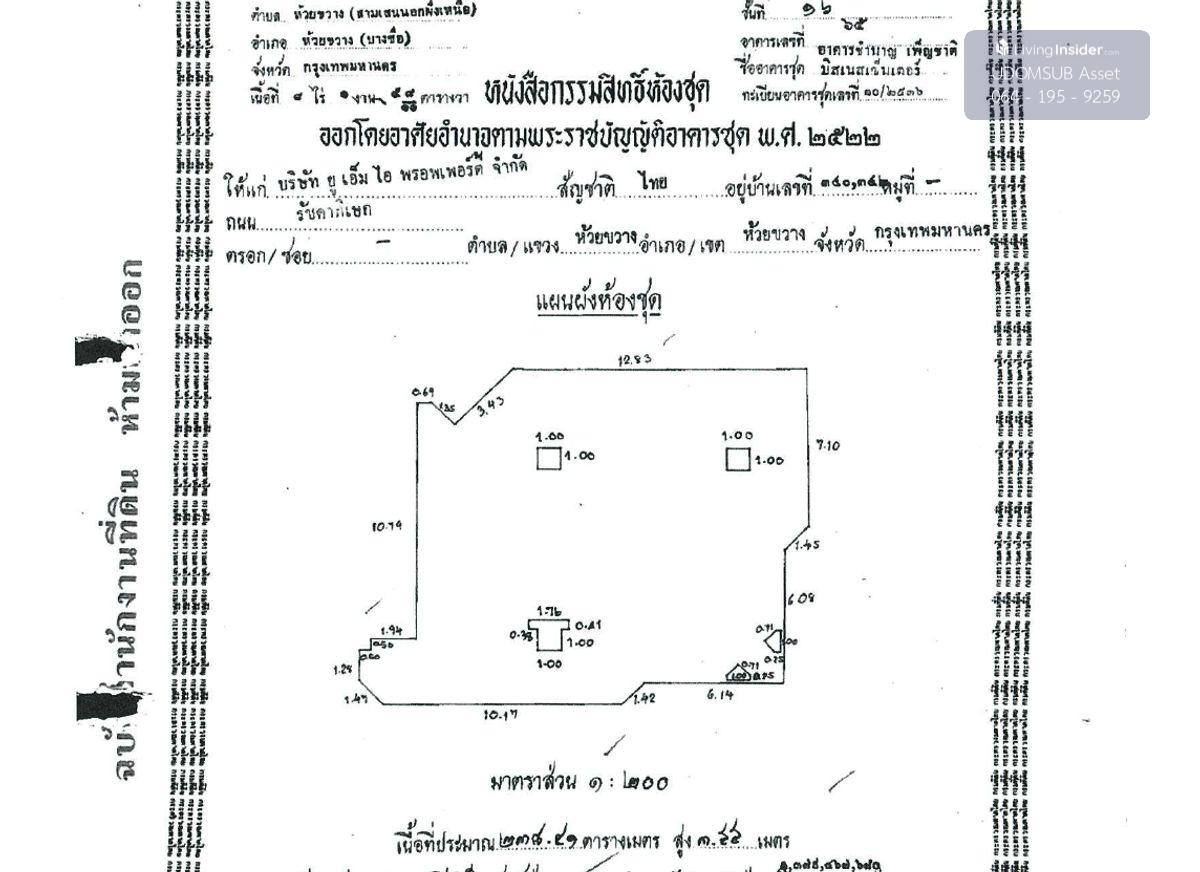 ตำบล ห้วยขวาง (สามเสนนอกฝั่งเหนือ)
ชั้นที่ ๑๖
อำเภอ ห้วยขวาง (บางซื่อ)
อาคารเลขที่ ๖๕
จังหวัด กรุงเทพมหานคร
ชื่ออาคารชุด อาคารชำนาญ เพ็ญชาติ บิสเนสเซ็นเตอร์
เนื้อที่ ๘ ไร่ ๑ งาน ตารางวา
หนังสือกรรมสิทธิ์ห้องชุด
ทะเบียนอาคารชุดเลขที่ ๑๐/๒๕๓๖
LivingInsider.com
UDOMSUB Asset
064 - 195 - 9259
ออกโดยอาศัยอำนาจตามพระราชบัญญัติอาคารชุด พ.ศ. ๒๕๒๒
ให้แก่ บริษัท ยู เอ็ม ไอ พรอพเพอร์ตี้ จำกัด สัญชาติ ไทย อยู่บ้านเลขที่ ๓๔๐,๓๔๒ หมู่ที่ –
ถนน รัชดาภิเษก
ตรอก/ซอย – ตำบล/แขวง ห้วยขวาง อำเภอ/เขต ห้วยขวาง จังหวัด กรุงเทพมหานคร
แผนผังห้องชุด
12.83
0.69
1.35
3.43
1.00
1.00
1.00
1.00
7.10
10.79
1.45
6.08
1.76
0.41
0.38
1.00
1.00
1.94
0.50
0.60
1.28
1.47
10.17
1.42
6.14
0.71
1.00
0.25
0.71
1.00
0.25
มาตราส่วน ๑ : ๒๐๐
เนื้อที่ประมาณ ๒๓๘.๔๑ ตารางเมตร สูง ๓.๕๕ เมตร